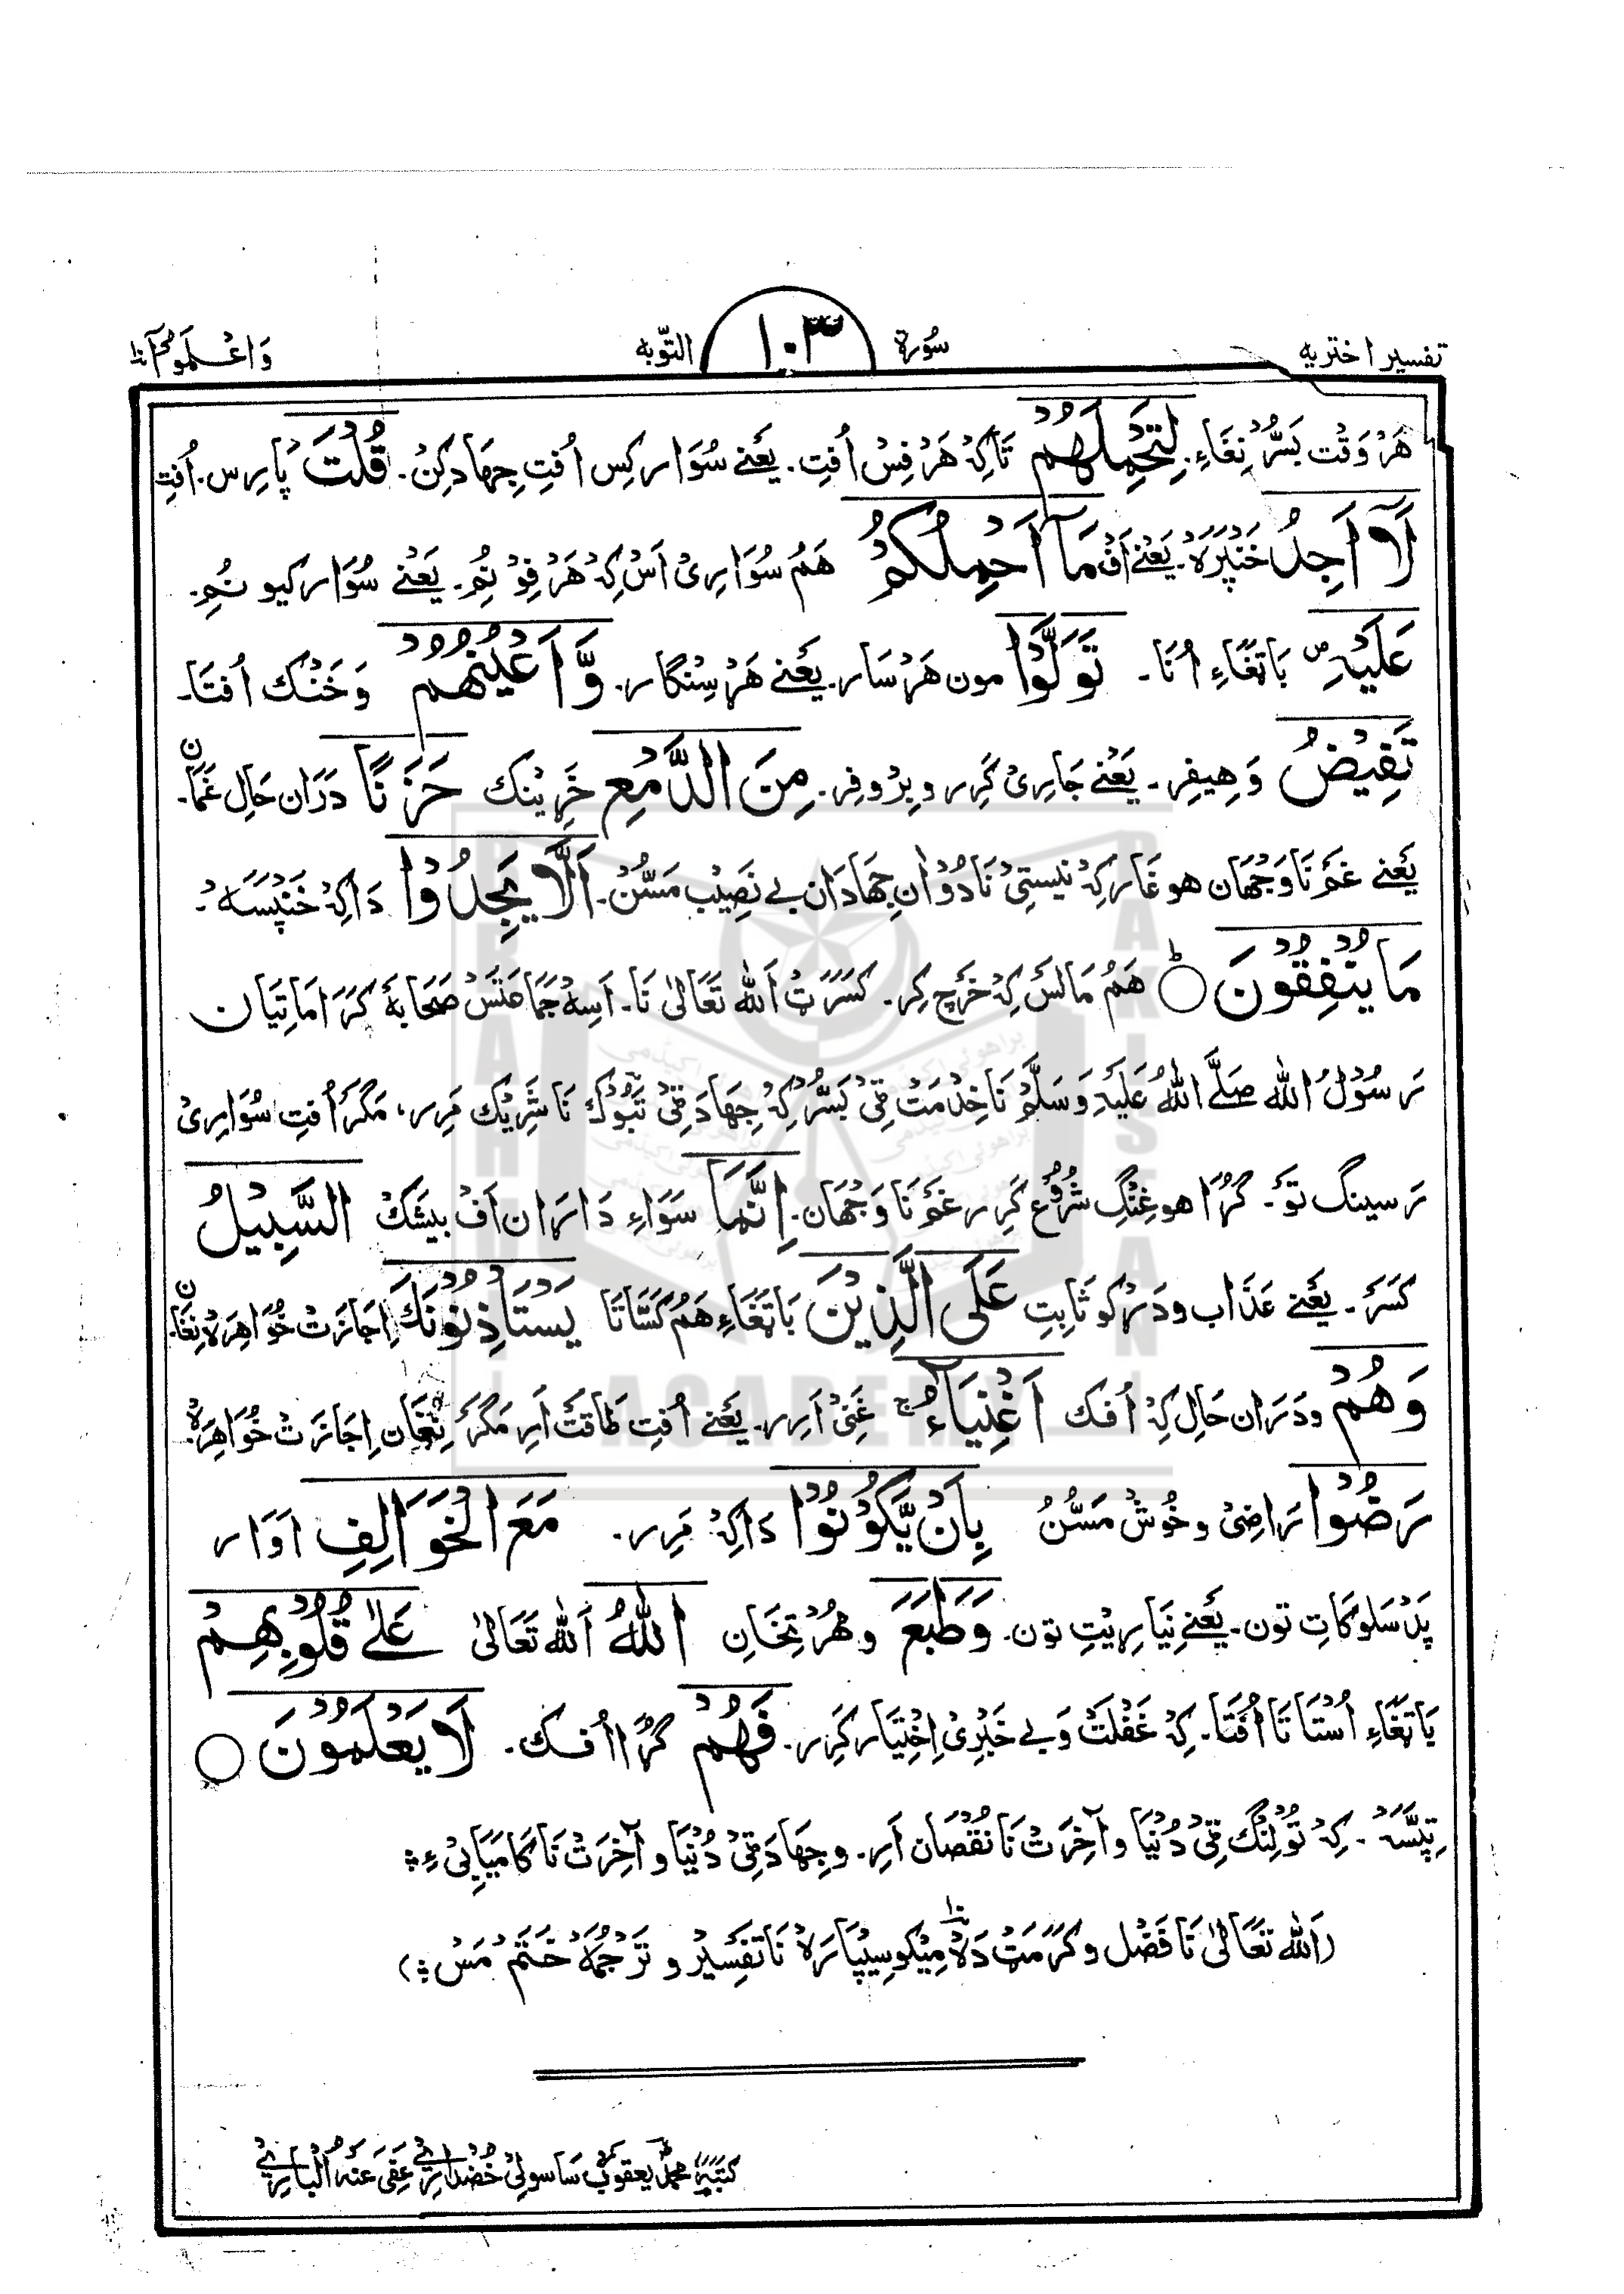 تفسیر اختریه سُورة ١٠٣ التّوبه وَاعْلَمُوٓا ١٠
هَرْ وَقْت بَسُّرْ نِغَاءِ۔ لِتَحْمِلَهُمْ تَاکِہْ هَرْفِسْ اُفتِ۔ یَعْنے سُوَارکِس اُفتِ جِهَادکِنْ۔ قُلْتَ پَارِس۔ اُفتِ
لَآ اَجِدُ خَنْپَرَہْ۔ یَعْنے اَفْ مَآ اَحْمِلُکُمْ هَمُ سُوَارِیْ اَسْ کِہْ هَرْفِوْ نُمِ۔ یَعْنے سُوَارکیو نُمِ۔
عَلَیْهِ ص بَاتغَاءِ اُنَا۔ تَوَلَّوْا مون هَرْسَار۔ یَعْنے هَرْسِنْگار۔ وَّاَعْیُنُهُمْ وَخَنْک اُفتَا۔
تَفِیْضُ وَهِیفِر۔ یَعْنے جَارِیْ کَرِر وبِرْوفِر۔ مِنَ الدَّمْعِ خَرِینک حَزَنًا دَرَان حَالِ غَمَانْ۔
یَعْنے غَمْ نَاوَجْهَان هوغَار کِہْ نیستِیْ نَادُوْانِ جِهَادَان بے نَصِیْب مَسُّنْ۔ اَلَّا یَجِدُوْا دَاکِہْ خَنْپَسَہْ۔
مَا یُنْفِقُوْنَ ط هَمُ مَالَسْ کِہْ خَرْچ کِر۔ کَسَرَتْ اَللّٰه تَعَالیٰ نَا۔ اَسِہْ جَمَاعَتَسْ صَحَابَۂ کَرَامَاتِیَان
رَسُوْلُ اللّٰه صَلَّے اللّٰهُ عَلَیْهِ وَسَلَّمْ نَاخِدْمَتْ ٹِیْ بَسُّرْ کِہْ جِهَادَ ٹِیْ تَبُوْک نَا شَرِیْک مَرِر، مَگَرْ اُفتِ سُوَارِیْ
رَسینگ تَوَ۔ گُڑَا هوغِنْگِ شُرُوْع کَرِر غَمْ نَاوَجْهَان۔ اِنَّمَا سَوَاءِ دَارَان اَفْ بیشَکْ السَّبِیْلُ
کَسَرْ۔ یَعْنے عَذَاب ودَرْکو ثَابِتِ عَلَی الَّذِیْنَ بَاتغَاءِ هَمُ کَسَّاتَا یَسْتَاْذِنُوْنَکَ اِجَازَتْ خُوَاهِرَہْ نِغَانْ۔
وَهُمْ ودَرَان حَالِ کِہْ اُفک اَغْنِیَآءُ ج غَنِیْ اَرِر۔ یَعْنے اُفتِ طَاقَتْ اَرِ مَگَرْ نِغَانِ اِجَازَتْ خُوَاهِرَہْ۔
رَضُوْا رَاضِیْ وخُوْش مَسُّنْ بِاَنْ یَّکُوْنُوْا دَاکِہْ مَرِر۔ مَعَ الْخَوَالِفِ اَوَار
پَدْسَلوکَاتِ تون۔ یَعْنے نِیَارِیْتِ تون۔ وَطَبَعَ ومُهُرْتِخَانِ اللّٰهُ اَللّٰه تَعَالیٰ عَلٰے قُلُوْبِهِمْ
بَاتغَاءِ اُسْتَاتَا اُفْتَا۔ کِہْ غَفْلَتْ وَبے خَبْرِیْ اِخْتِیَار کَرِر۔ فَهُمْ گُڑَا اُفک۔ لَا یَعْلَمُوْنَ
تِپَسَّہْ۔ کِہْ تُوْلِنْگ ٹِیْ دُنْیَا وآخِرَتْ نَا نُقْصَان اَرِ۔ وجِهَادَ ٹِیْ دُنْیَا وآخِرَتْ نَا کَامیَابِیْ ءِ
(اَللّٰه تَعَالیٰ نَا فَضْل وکَرَمَتْ دَہْ مِیْکو سِیْپَارَہْ نَا تَفْسِیْر وتَرْجُمَہْ خَتَمْ مَسْ)
کَتَبَهٗ محمّد یعقوب سَاسولِیْ خُضْدَارِیْ عُفِیَ عَنْهُ الْبَارِیْ